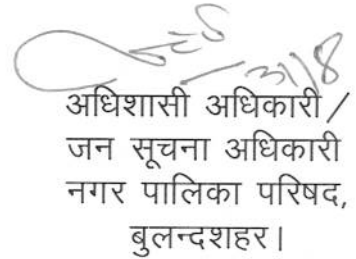 31/8
अधिशासी अधिकारी/
जन सूचना अधिकारी
नगर पालिका परिषद,
बुलन्दशहर।